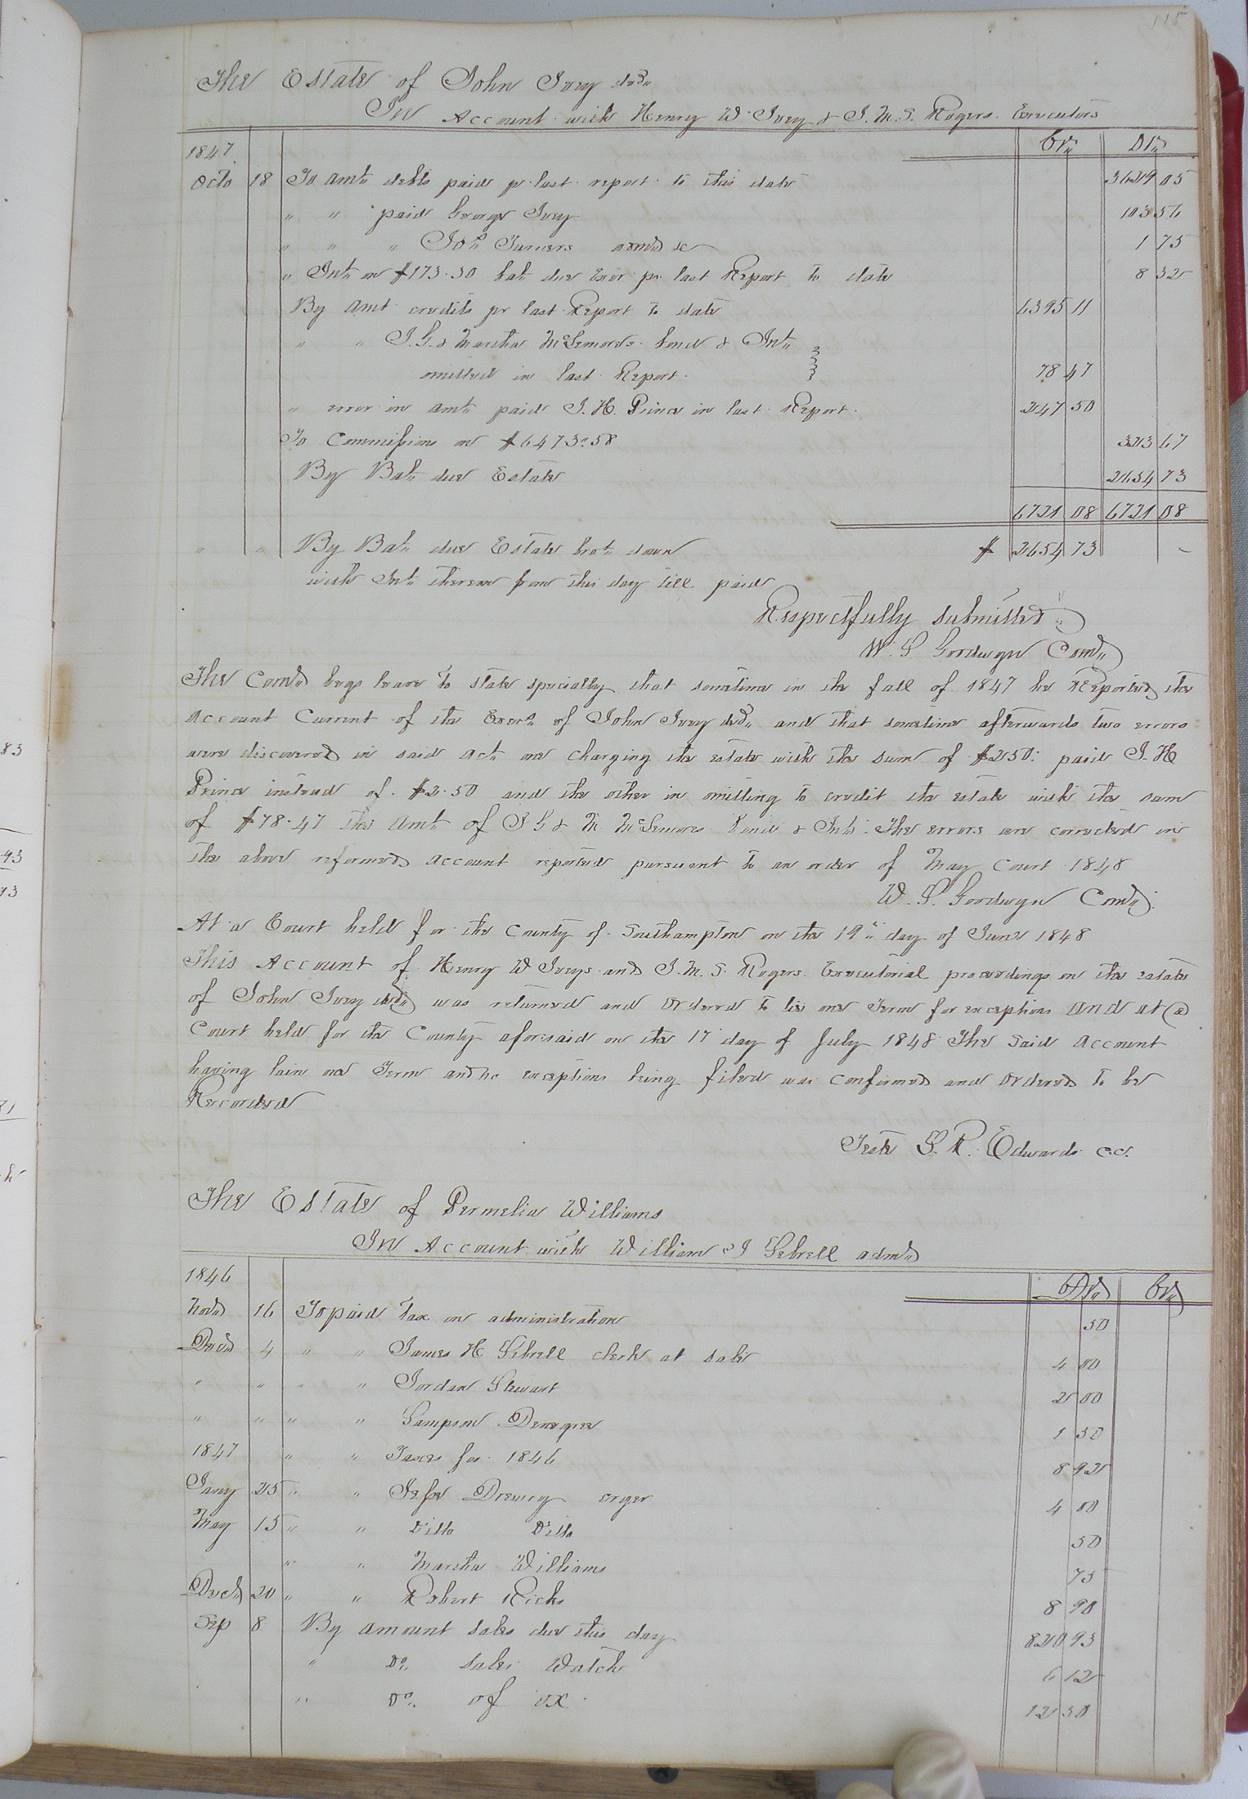 115
The Estate of John Ivey decd
In Account with Henry W. Ivey & J. M. S. Rogers Executors
1847 Crs Drs
Octo 18 To Amt debts paid pr last report to this date 3629 05
" " paid George Ivey 103 56
" " " Jos Turners acmd &c 1 75
" Int on $173.30 bal due Exor pr last Report to date 8 32
By Amt credits pr last Report to date 6395 11
" " J. G. & Martha McLemore bond & Int
omitted in last Report 78 47
" error in amt paid J. H. Prince in last Report 247 50
To Commissions on $6473.58 323 67
By Bal due Estate 2654 73
6721 08 6721 08
" " By Bal due Estate brot down $ 2654 73 -
with Int thereon from this day till paid
Respectfully submitted
W. S. Goodwyn Comr
The Comr begs leave to state specially that sometime in the fall of 1847 he Reported the
Account Current of the Exors of John Ivey decd and that sometime afterwards two errors
were discovered in said Act one charging the estate with the sum of $250: paid J. H
Prince instead of $2.50 and the other in omitting to credit the estate with the sum
of $78.47 the Amt of J G & M McLemores bond & Int. The errors are corrected in
the above reformed account reported pursuant to an order of May Court 1848
W. S. Goodwyn Comr
At a Court held for the County of Southampton on the 19th day of June 1848
This Account of Henry W Iveys and J. M. S. Rogers Executorial proceedings on the estate
of John Ivey decd was returned and Ordered to lie one Term for exceptions And at a
Court held for the County aforesaid on the 17 day of July 1848 The said Account
having lain one Term and no exceptions being filed was confirmed and Ordered to be
Recorded
Teste L. R. Edwards C.C.
The Estate of Permelia Williams
In Account with William J Sebrell admr
1846 Drs Crs
Novr 16 To paid tax on administration 50
Decr 4 " " James H Sebrell clerk at sale 4 00
" " " " Jordan Stewart 2 00
" " " " Sampson 1 50
1847 " " Taxes for 1846 8 92
Jany 25 " " Jesse Drewry cryer 4 00
May 15 " " Ditto Ditto 50
" " Martha Williams 75
Decr 20 " " Robert Ricks 8 90
Sep 8 By amount sales due this day 820 93
" Do sales Watch 6 12
" Do of ox 12 50
83
43
93
81